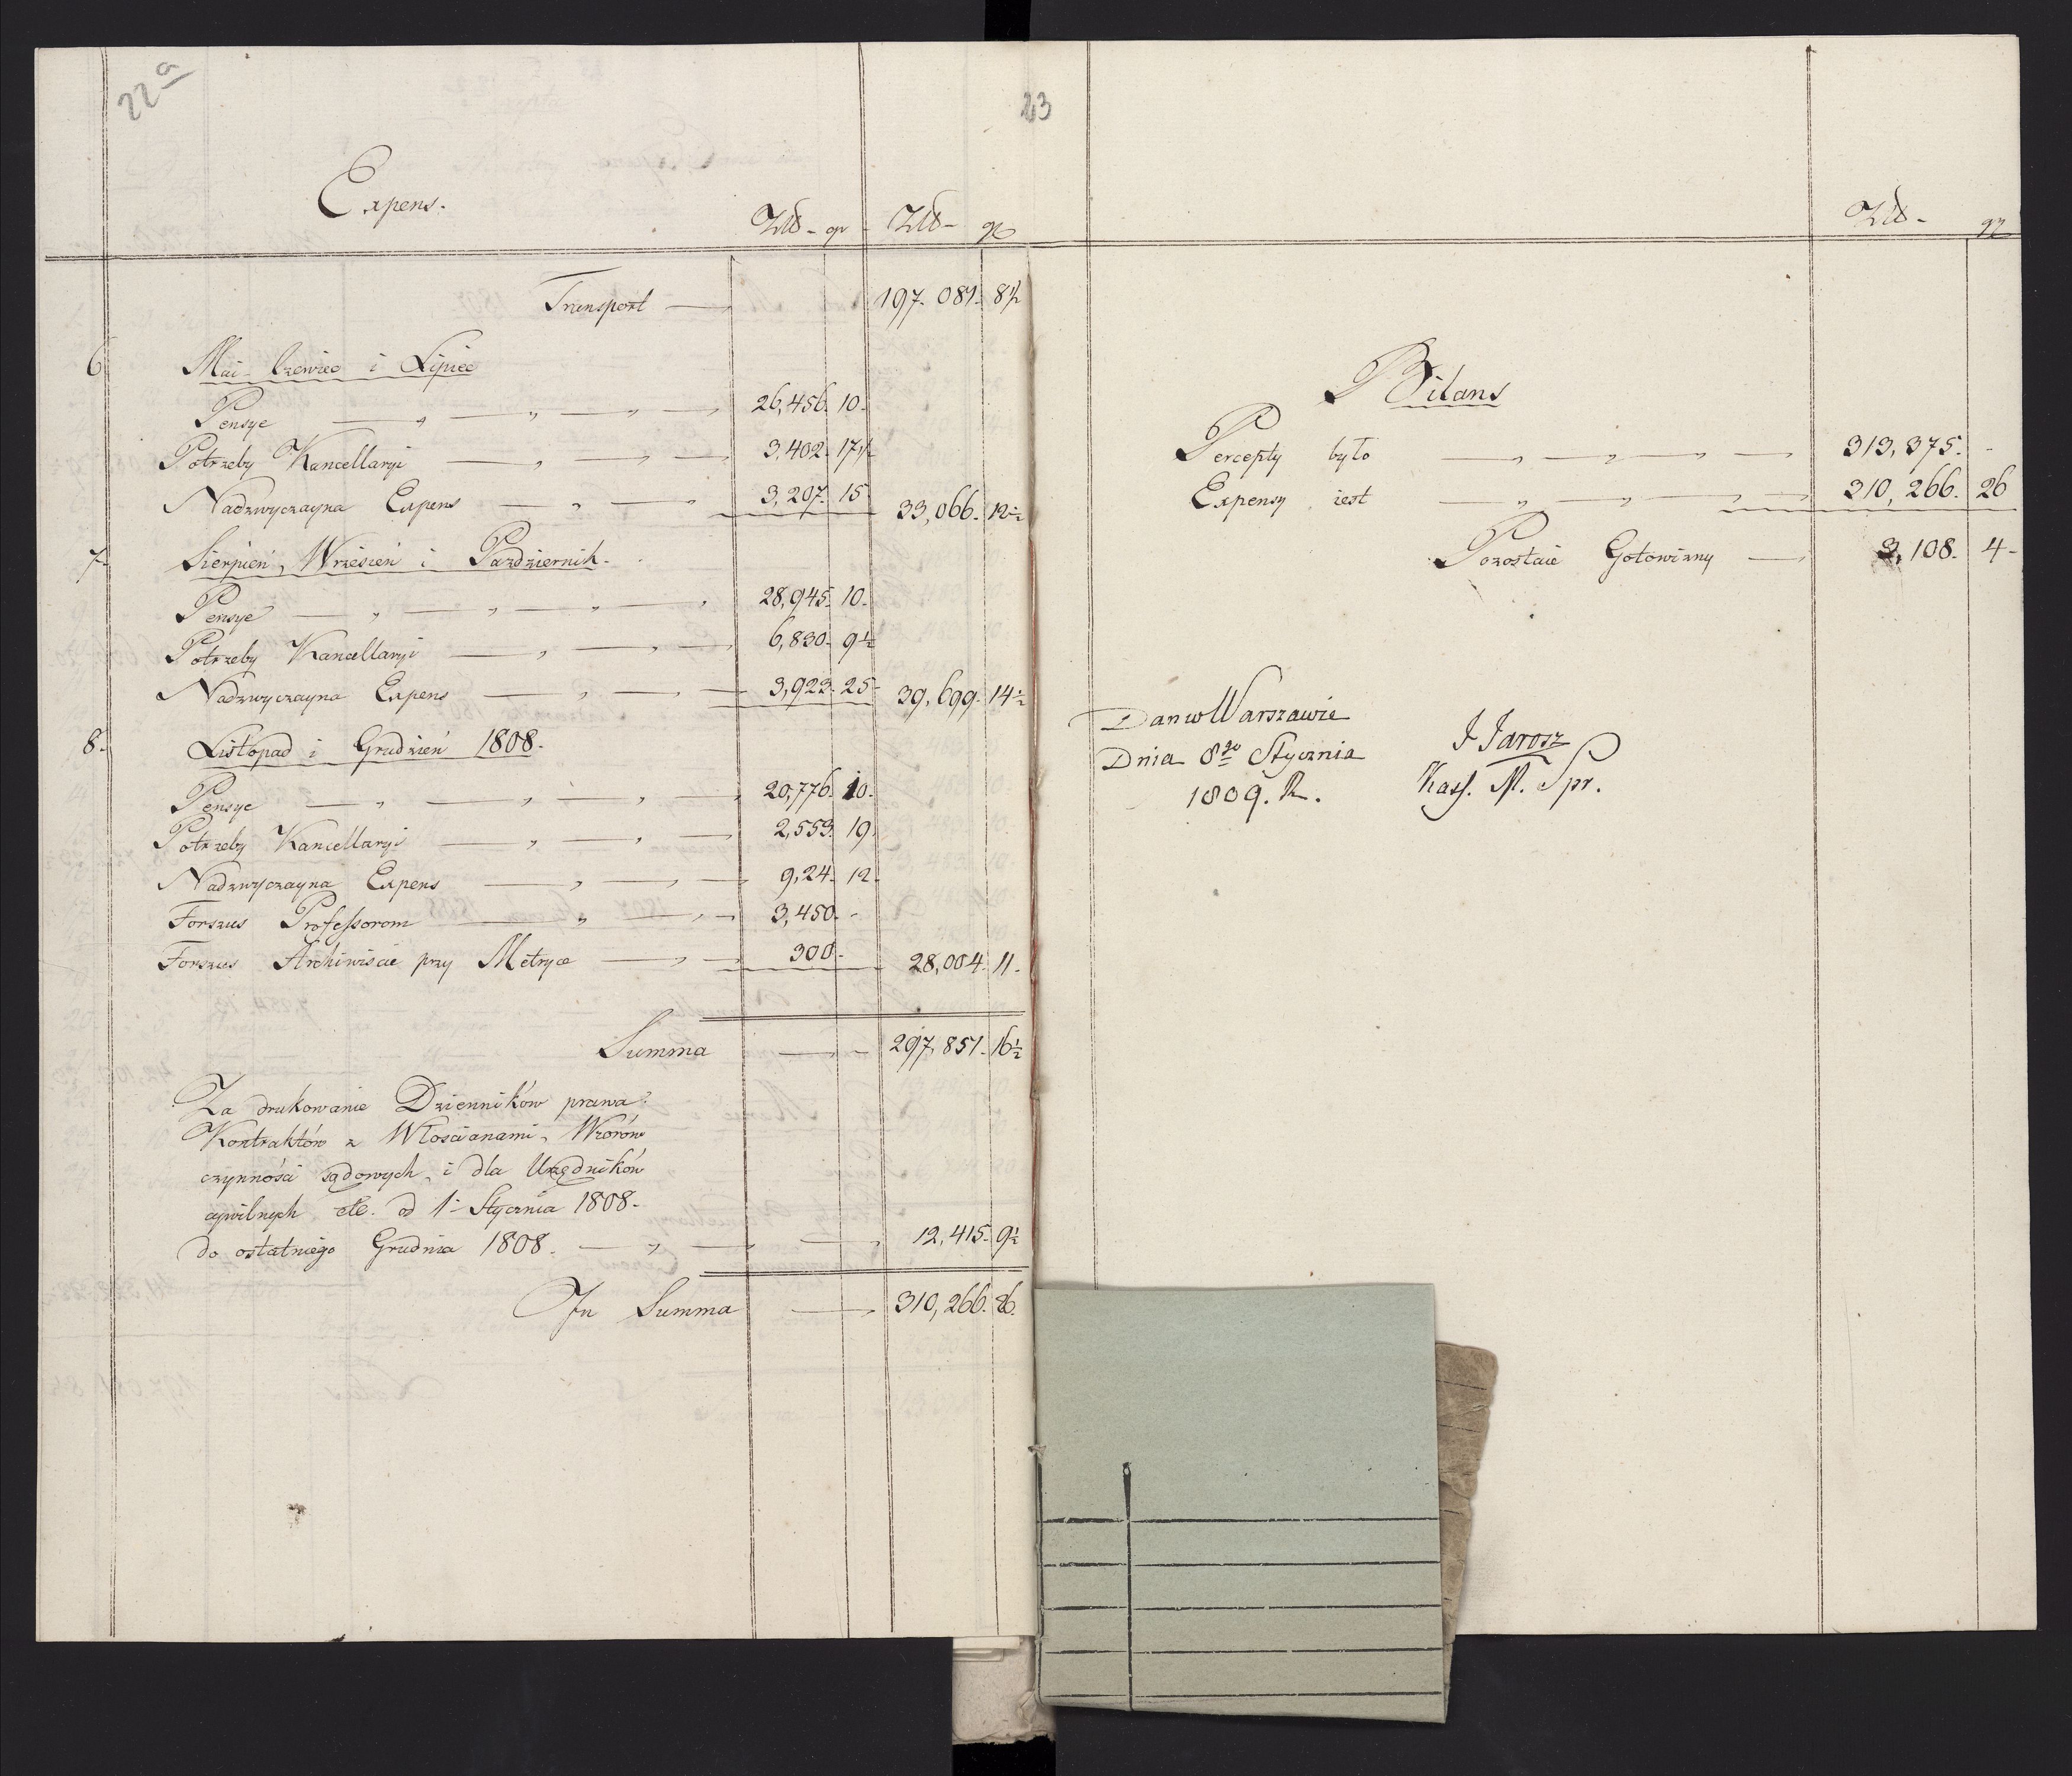 22a
Expens.
Złł - gr - Złł - gr
Transport — 197,081. 8½
6 Mai Czerwiec i Lipiec
Pensye — „ — „ — „ — 26,456. 10.
Potrzeby Kancellaryi — „ — „ — 3,402. 17½
Nadzwyczayna Expens — „ — 3,207. 15 33,066. 12½
7. Sierpień, Wrzesień i Pazdziernik.
Pensye — „ — „ — „ — „ 28,945. 10.
Potrzeby Kancellaryi — „ — „ — 6,830. 9½
Nadzwyczayna Expens — „ — „ — 3,923. 25 39,699. 14½
8. Listopad i Grudzień 1808.
Pensye — „ — „ — „ — 20,776. 10.
Potrzeby Kancellaryi — „ — „ — 2,553. 19.
Nadzwyczayna Expens — „ — „ — 9,24. 12.
Forszus Professorom — „ — „ — 3,450. -
Forszus Archiwiscie przy Metryce — „ — 300. - 28,004. 11.
Summa — 297,851. 16½
Za drukowanie Dzienników prawa,
Kontraktów z Włoscianami, Wzorów
czynności sądowych, i dla Urzędników
cywilnych etc. od 1- Stycznia 1808.
do ostatniego Grudnia 1808. — „ — 12,415. 9½
In Summa — 310,266. 26.
23
Złł - gr
Bilans
Percepty było — „ — „ — „ — 313,375. -
Expensy iest — „ — „ — „ — 310,266. 26
Pozostaie Gotowizny — 3,108. 4-
Dan w Warszawie
Dnia 8go Stycznia
1809. R.
J Jarosz
Kass. M. Spr.